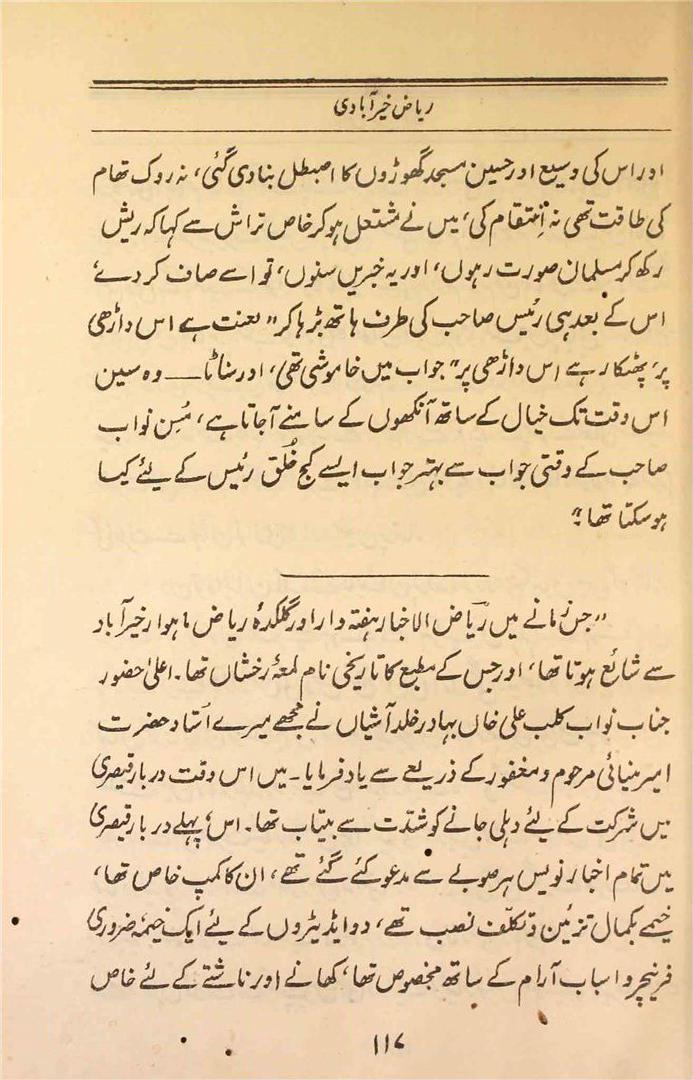 ریاض خیرآبادی
اور اس کی وسیع اور حسین مسجد گھوڑوں کا اصطبل بنادی گئی، نہ روک تھام
کی طاقت تھی نہ اِنتقام کی، میں نے مشتعل ہو کر خاص تراش سے کہا کہ ریش
رکھ کر مسلمان صورت رہوں، اور یہ خبریں سنوں، تو اسے صاف کر دے،
اس کے بعد ہی رئیس صاحب کی طرف ہاتھ بڑہا کر "لعنت ہے اس داڑھی
پر، پھٹکار ہے اس داڑھی پر" جواب میں خاموشی تھی، اور سناٹا — وہ سین
اس وقت تک خیال کے ساتھ آنکھوں کے سامنے آجاتا ہے، مُسِن نواب
صاحب کے وقتی جواب سے بہتر جواب ایسے کج خُلق رئیس کے لیئے کیا
ہو سکتا تھا؟"
"جس زمانے میں ریاؔض الاخبار ہفتہ وار اور گلکدۂ ریاض ماہوار خیرآباد
سے شائع ہوتا تھا، اور جس کے مطبع کا تاریخی نام لمعۂ رخشاں تھا۔ اعلیٰ حضور
جناب نواب کلب علی خاں بہادر خلد آشیاں نے مجھے میرے اُستاد حضرت
امیر مینائی مرحوم و مغفور کے ذریعے سے یاد فرمایا۔ میں اس وقت دربار قیصری
میں شرکت کے لیئے دہلی جانے کو شدّت سے بیتاب تھا۔ اس پہلے دربار قیصری
میں تمام اخبار نویس ہر صوبے سے مدعو کئے گئے تھے، ان کا کمپ خاص تھا،
خیمے بکمال تزئین و تکلّف نصب تھے، دو ایڈیٹروں کے لیئے ایک خیمہ ضروری
فرنیچر و اسباب آرام کے ساتھ مخصوص تھا، کھانے اور ناشتے کے لئے خاص
۱۱۷